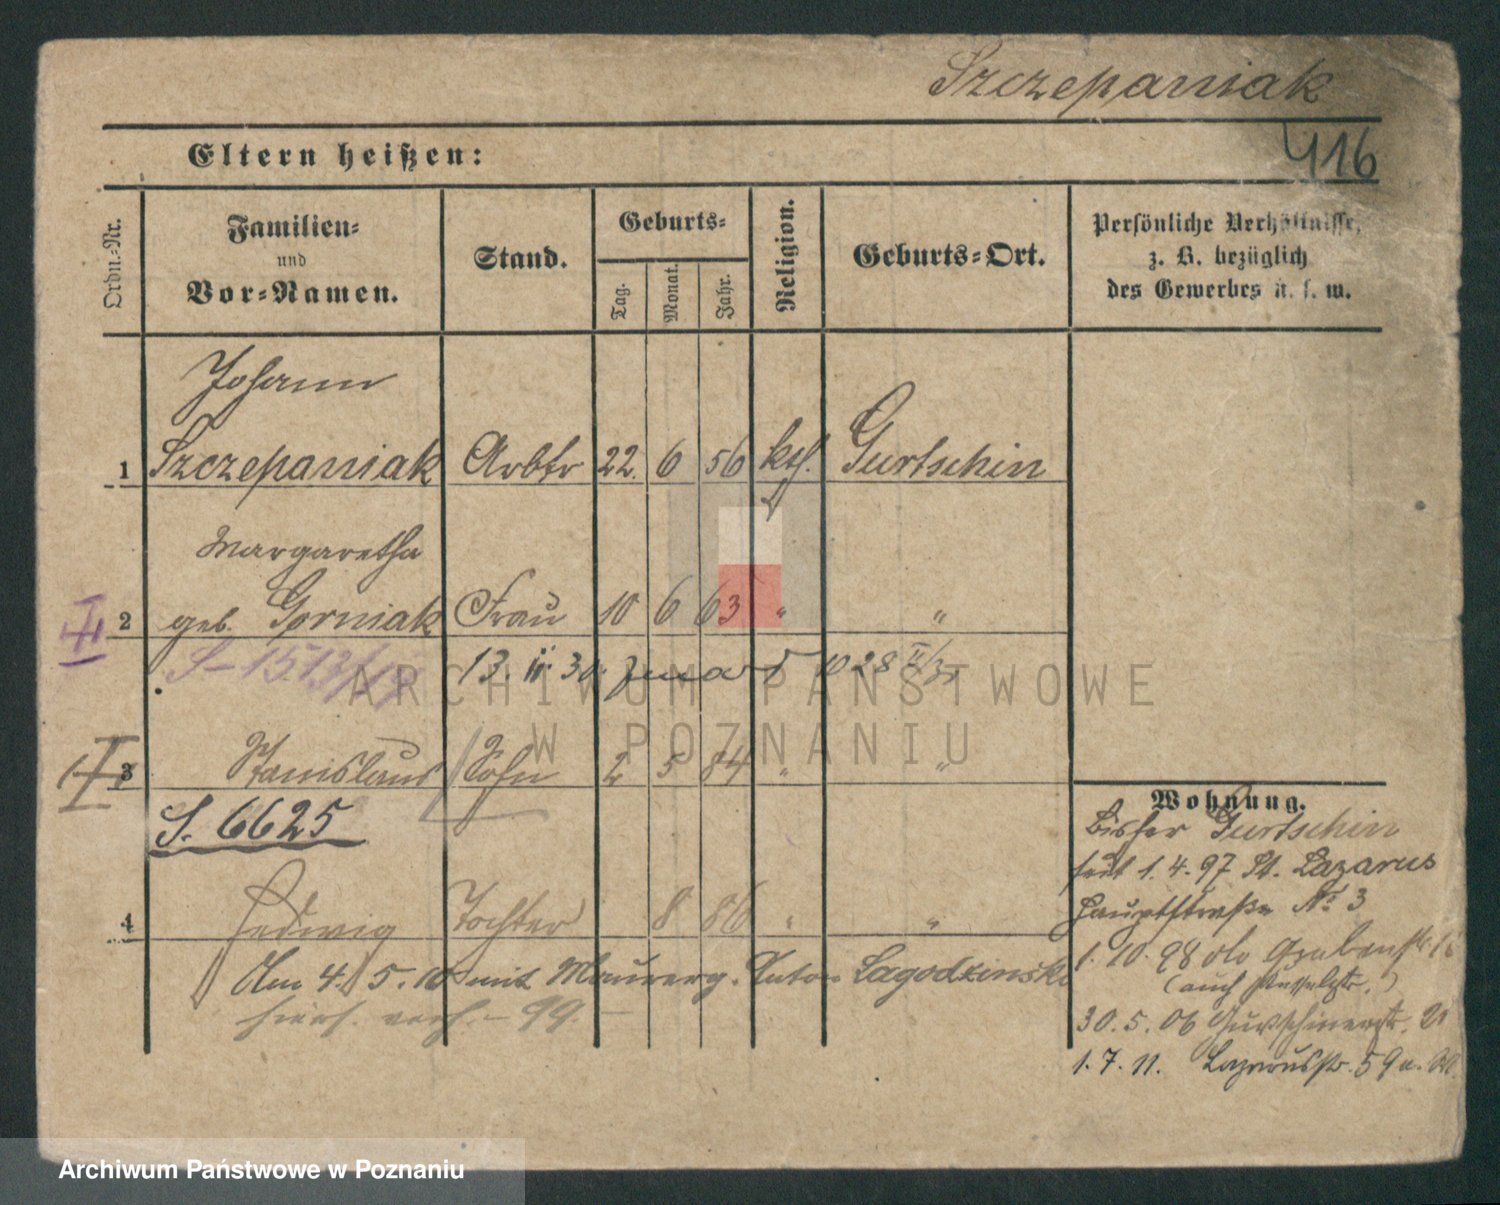 Szczepaniak
416
Eltern heißen:
Ordn.-Nr.
Familien-
und
Vor-Namen.
Stand.
Geburts-
Tag.
Monat.
Jahr.
Religion.
Geburts-Ort.
Persönliche Verhältnisse,
z. B. bezüglich
des Gewerbes u. s. w.
Johann
1 Szczepaniak Arbtr 22. 6 56 kth. Gurtschin
Margaretha
2 geb. Gorniak Frau 10 6 63 " "
S-1513/18
13. 30.
3 Stanislaus Sohn 2 5 84 " "
S. 6625
4 Hedwig Tochter 8 86 " "
Am 4. 5. 10 mit Maurerg. Anton Lagodzinski
hiers. verh. - 99. -
Wohnung.
Bisher Gurtschin
seit 1. 4. 97 St. Lazarus
Hauptstraße No 3
1. 10. 98 Grabenstr.
(auch
30. 5. 06 Gurtschinerstr. 21
1. 7. 11. Lazarusstr. 59
ARCHIWUM PAŃSTWOWE
W POZNANIU
Archiwum Państwowe w Poznaniu